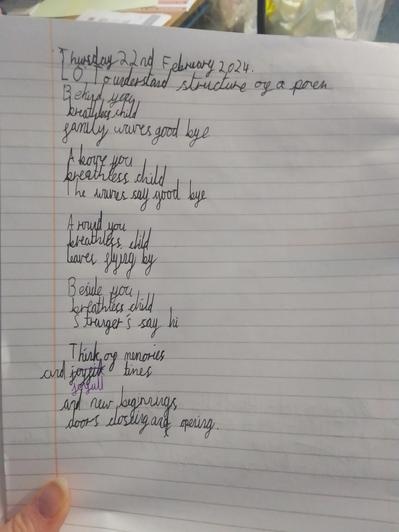 Thursday 22nd February 2024.
L.O. To understand structure og a poem
Behind you
breathless child
family waves good bye
Above you
breathless child
The waves say good bye
Around you
breathless child
leaves flying by
Beside you
breathless child
Stranger's say hi
Think og minories
and joyfull times
joyfull
and new beginnings
doors closeing and opening.